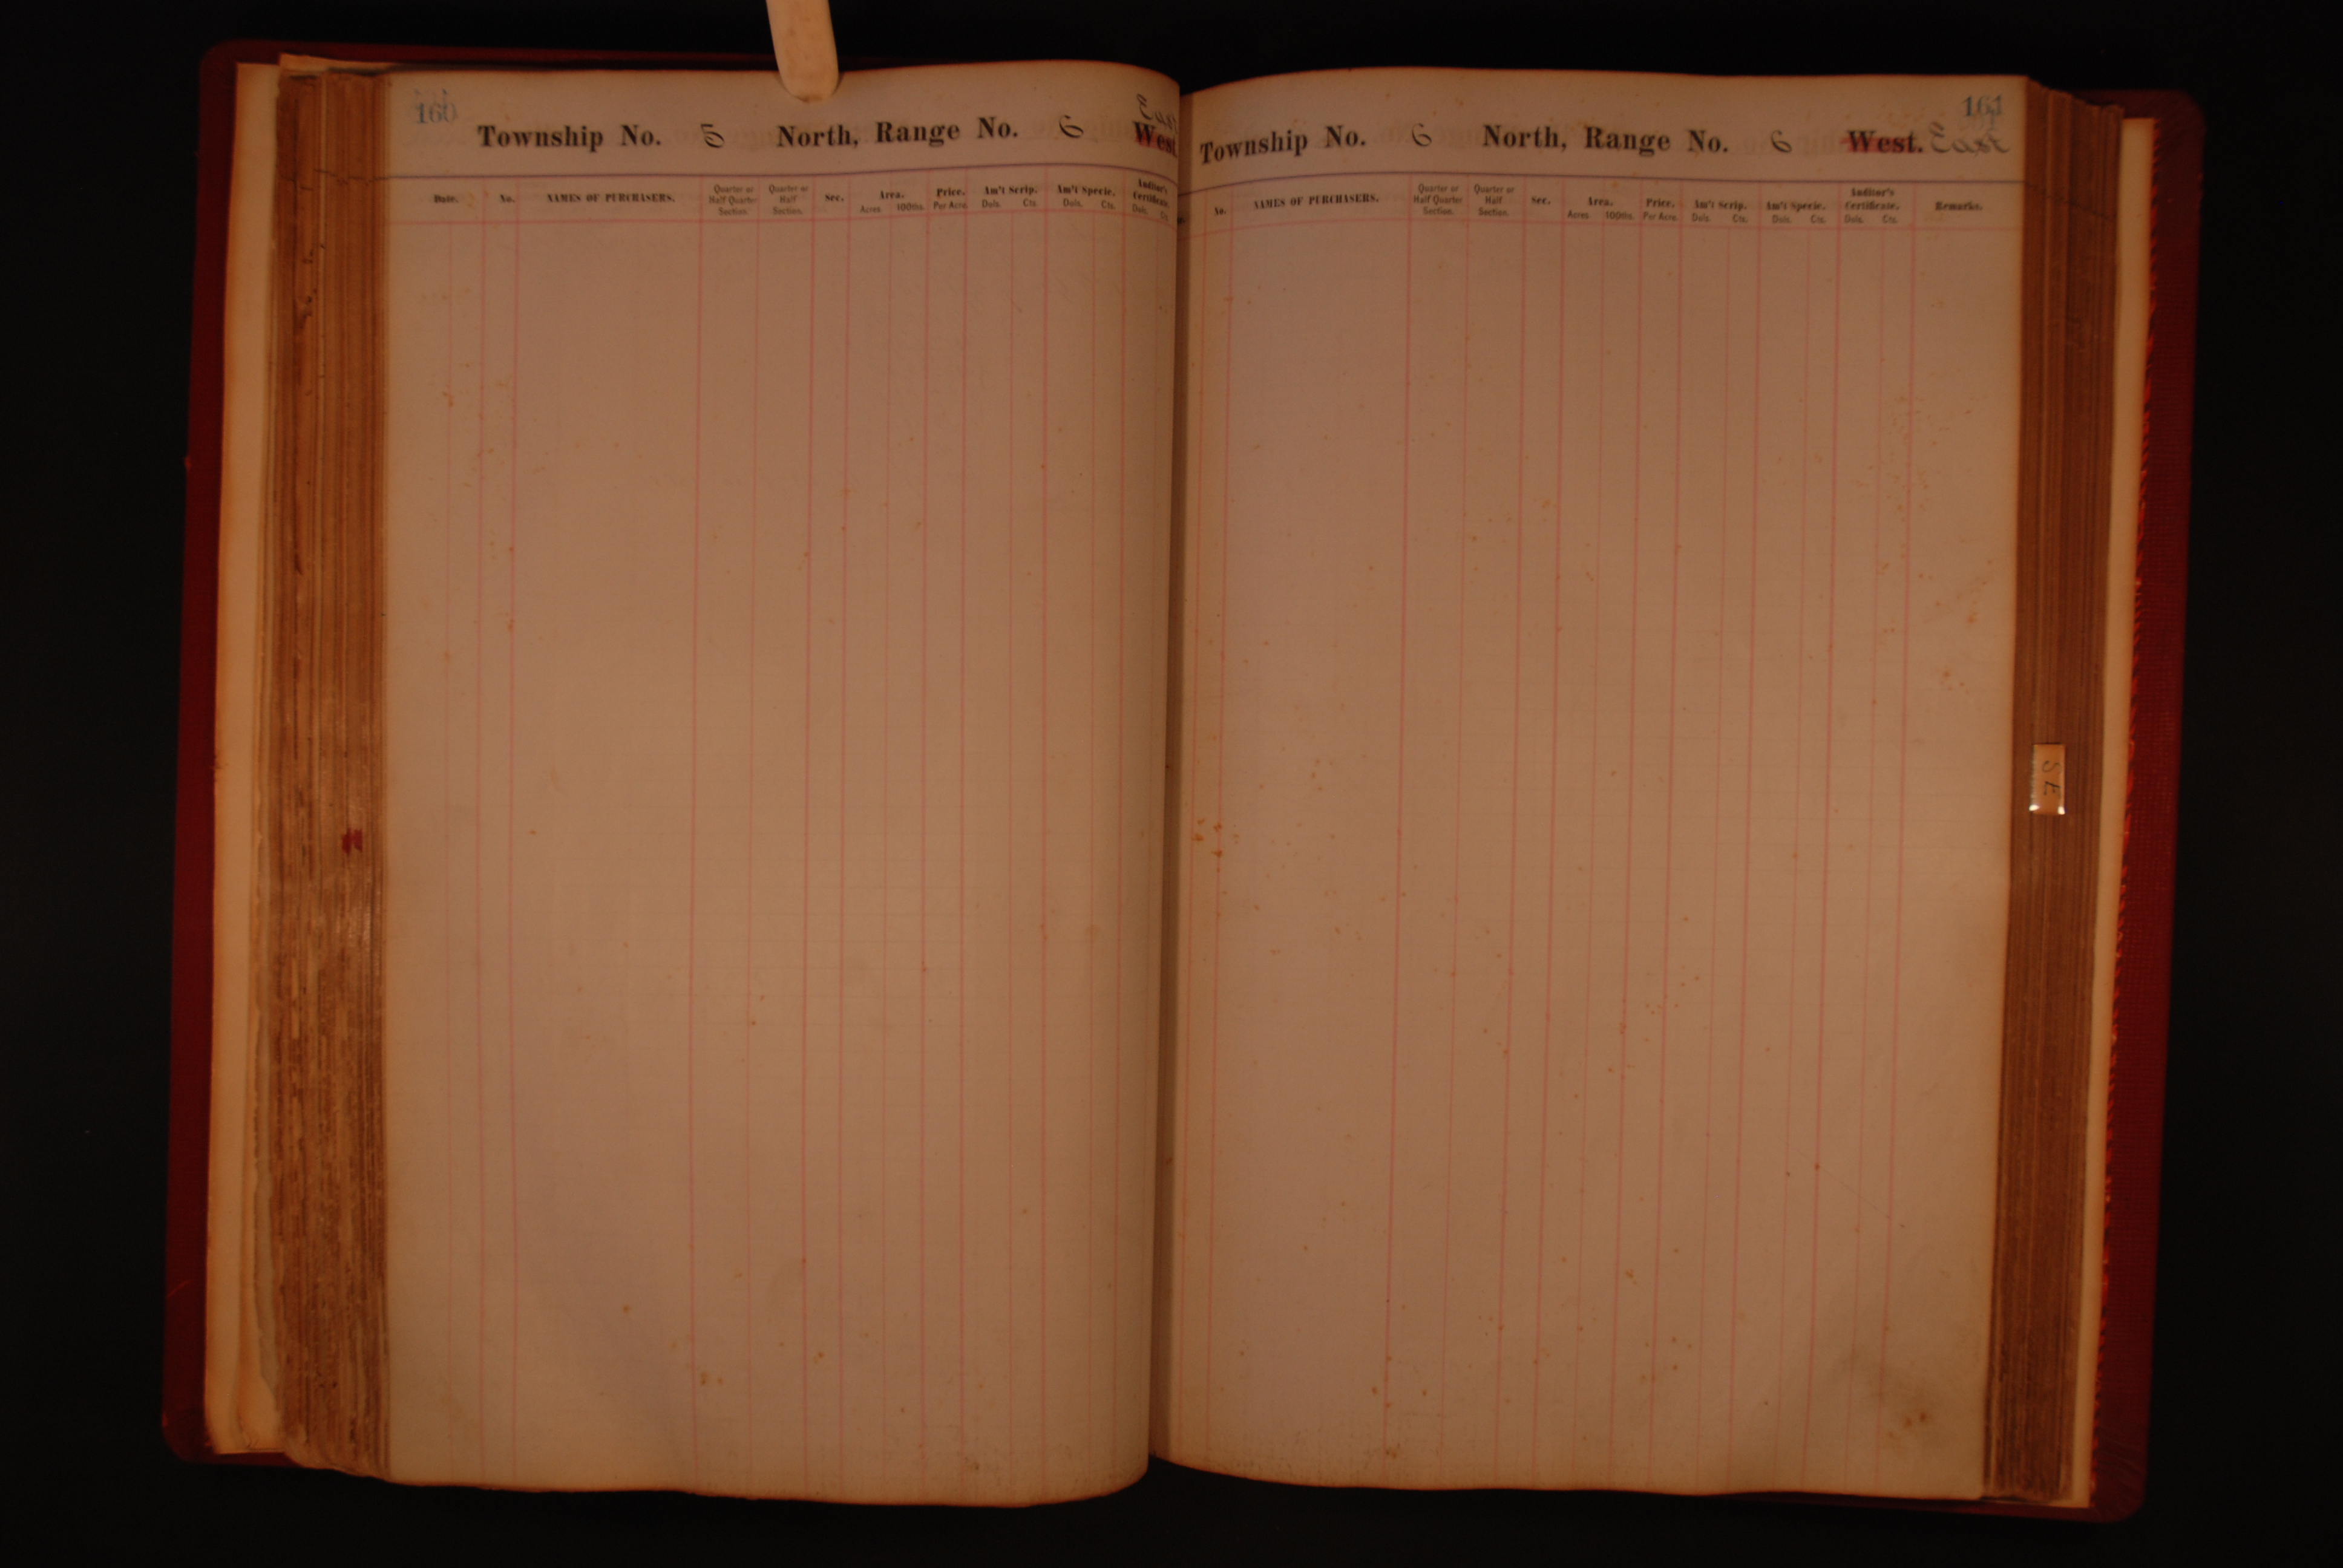 160
Township No. 5 North, Range No. 6 West. East
Date. No. NAMES OF PURCHASERS. Quarter or Half Quarter Section. Quarter or Half Section. Sec. Area. Acres 100ths. Price. Per Acre. Am't Scrip. Dols. Cts. Am't Specie. Dols. Cts. Auditor's Certificate. Dols. Cts.
161
Township No. 6 North, Range No. 6 West. East
No. NAMES OF PURCHASERS. Quarter or Half Quarter Section. Quarter or Half Section. Sec. Area. Acres. 100ths. Price. Per Acre. Am't Scrip. Dols. Cts. Am't Specie. Dols. Cts. Auditor's Certificate. Dols. Cts. Remarks.
SE